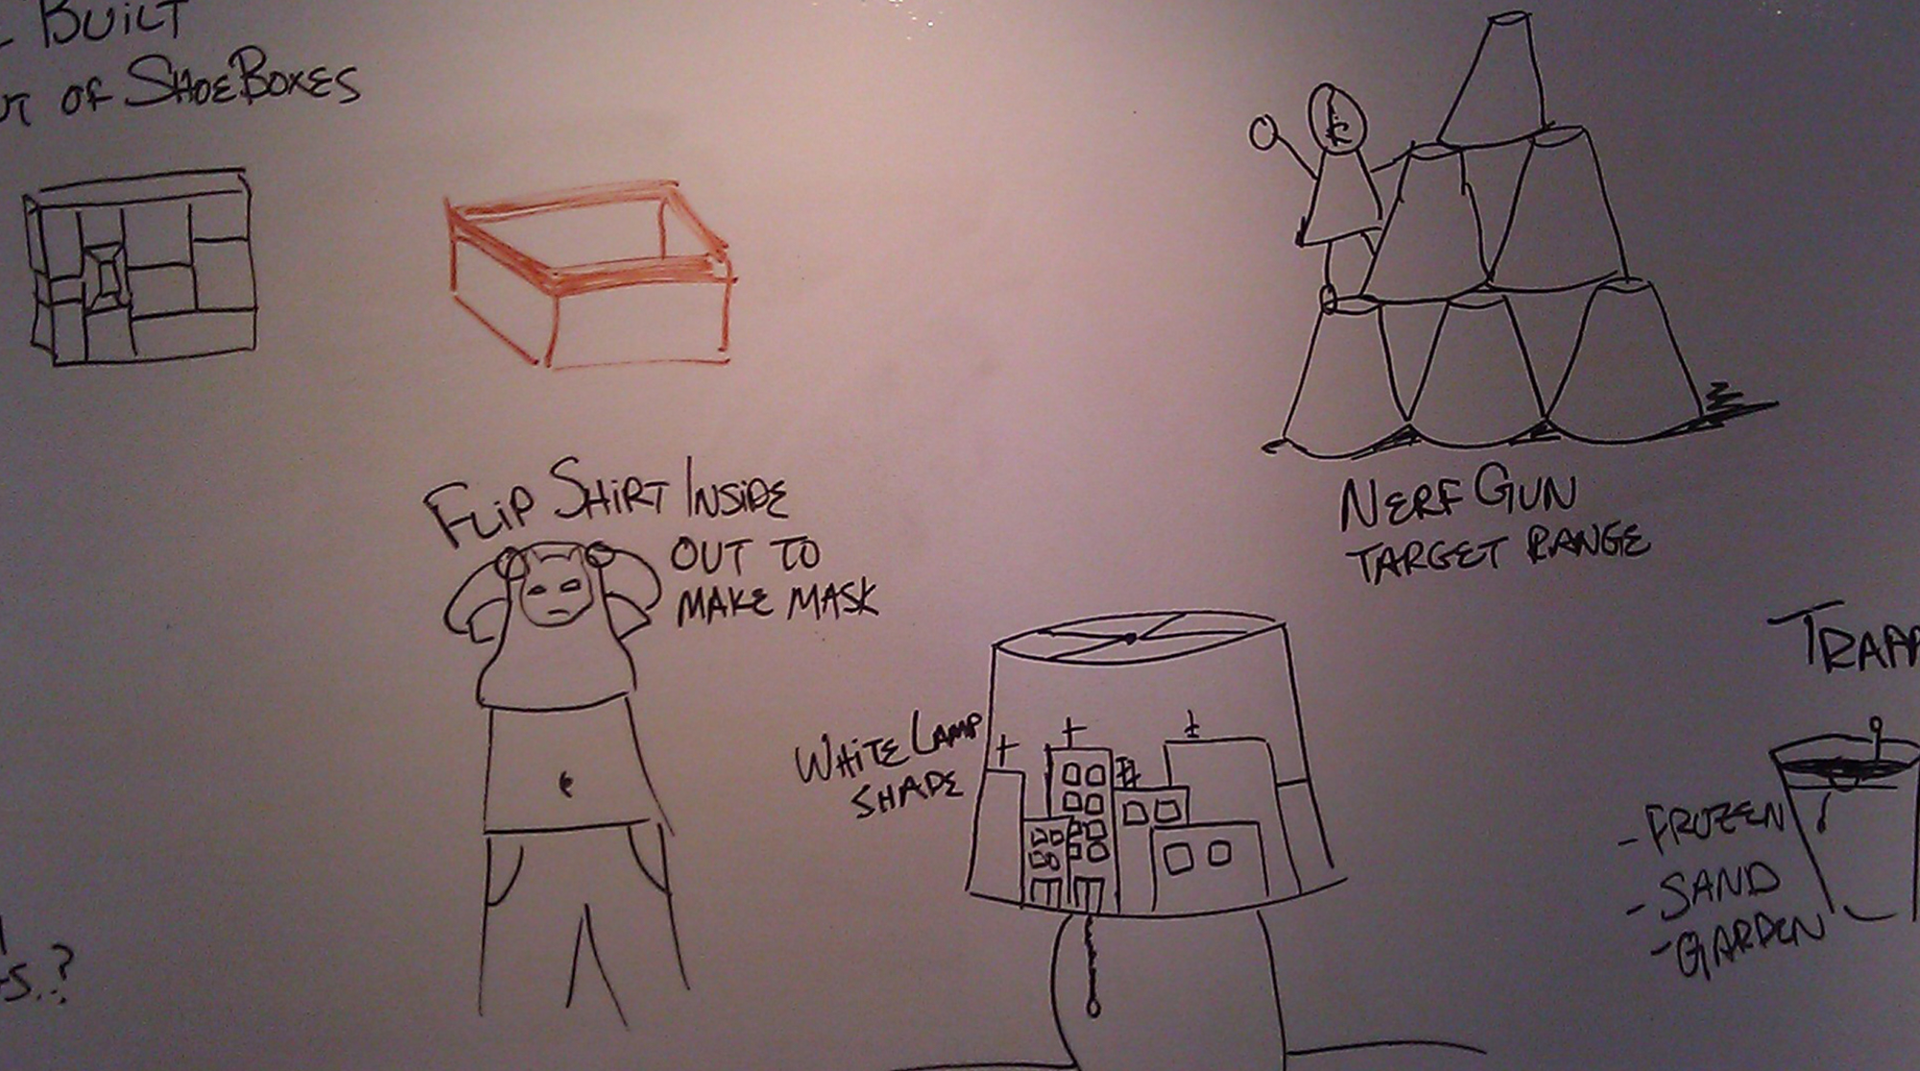 BUILT
OF SHOEBOXES
FLIP SHIRT INSIDE
OUT TO
MAKE MASK
NERF GUN
TARGET RANGE
WHITE LAMP
SHADE
- FROZEN
- SAND
- GARDEN